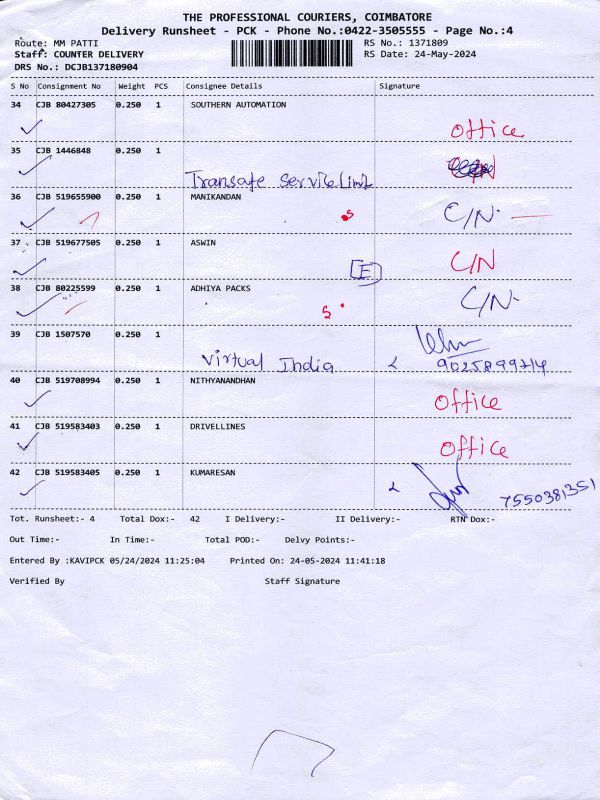 THE PROFESSIONAL COURIERS, COIMBATORE
Delivery Runsheet - PCK - Phone No.:0422-3505555 - Page No.:4
Route: MM PATTI RS No.: 1371809
Staff: COUNTER DELIVERY RS Date: 24-May-2024
DRS No.: DCJB137180904
S No Consignment No Weight PCS Consignee Details Signature
34 CJB 80427305 0.250 1 SOUTHERN AUTOMATION
Office
35 CJB 1446848 0.250 1
Transafe Service Limit
36 CJB 519655900 0.250 1 MANIKANDAN
C/N.
37 CJB 519677505 0.250 1 ASWIN
E C/N
38 CJB 80225599 0.250 1 ADHIYA PACKS
C/N.
39 CJB 1507570 0.250 1
Virtual India
40 CJB 519708994 0.250 1 NITHYANANDHAN
Office
41 CJB 519583403 0.250 1 DRIVELLINES
Office
42 CJB 519583405 0.250 1 KUMARESAN
7550381351
Tot. Runsheet:- 4 Total Dox:- 42 I Delivery:- II Delivery:- RTN Dox:-
Out Time:- In Time:- Total POD:- Delvy Points:-
Entered By :KAVIPCK 05/24/2024 11:25:04 Printed On: 24-05-2024 11:41:18
Verified By Staff Signature